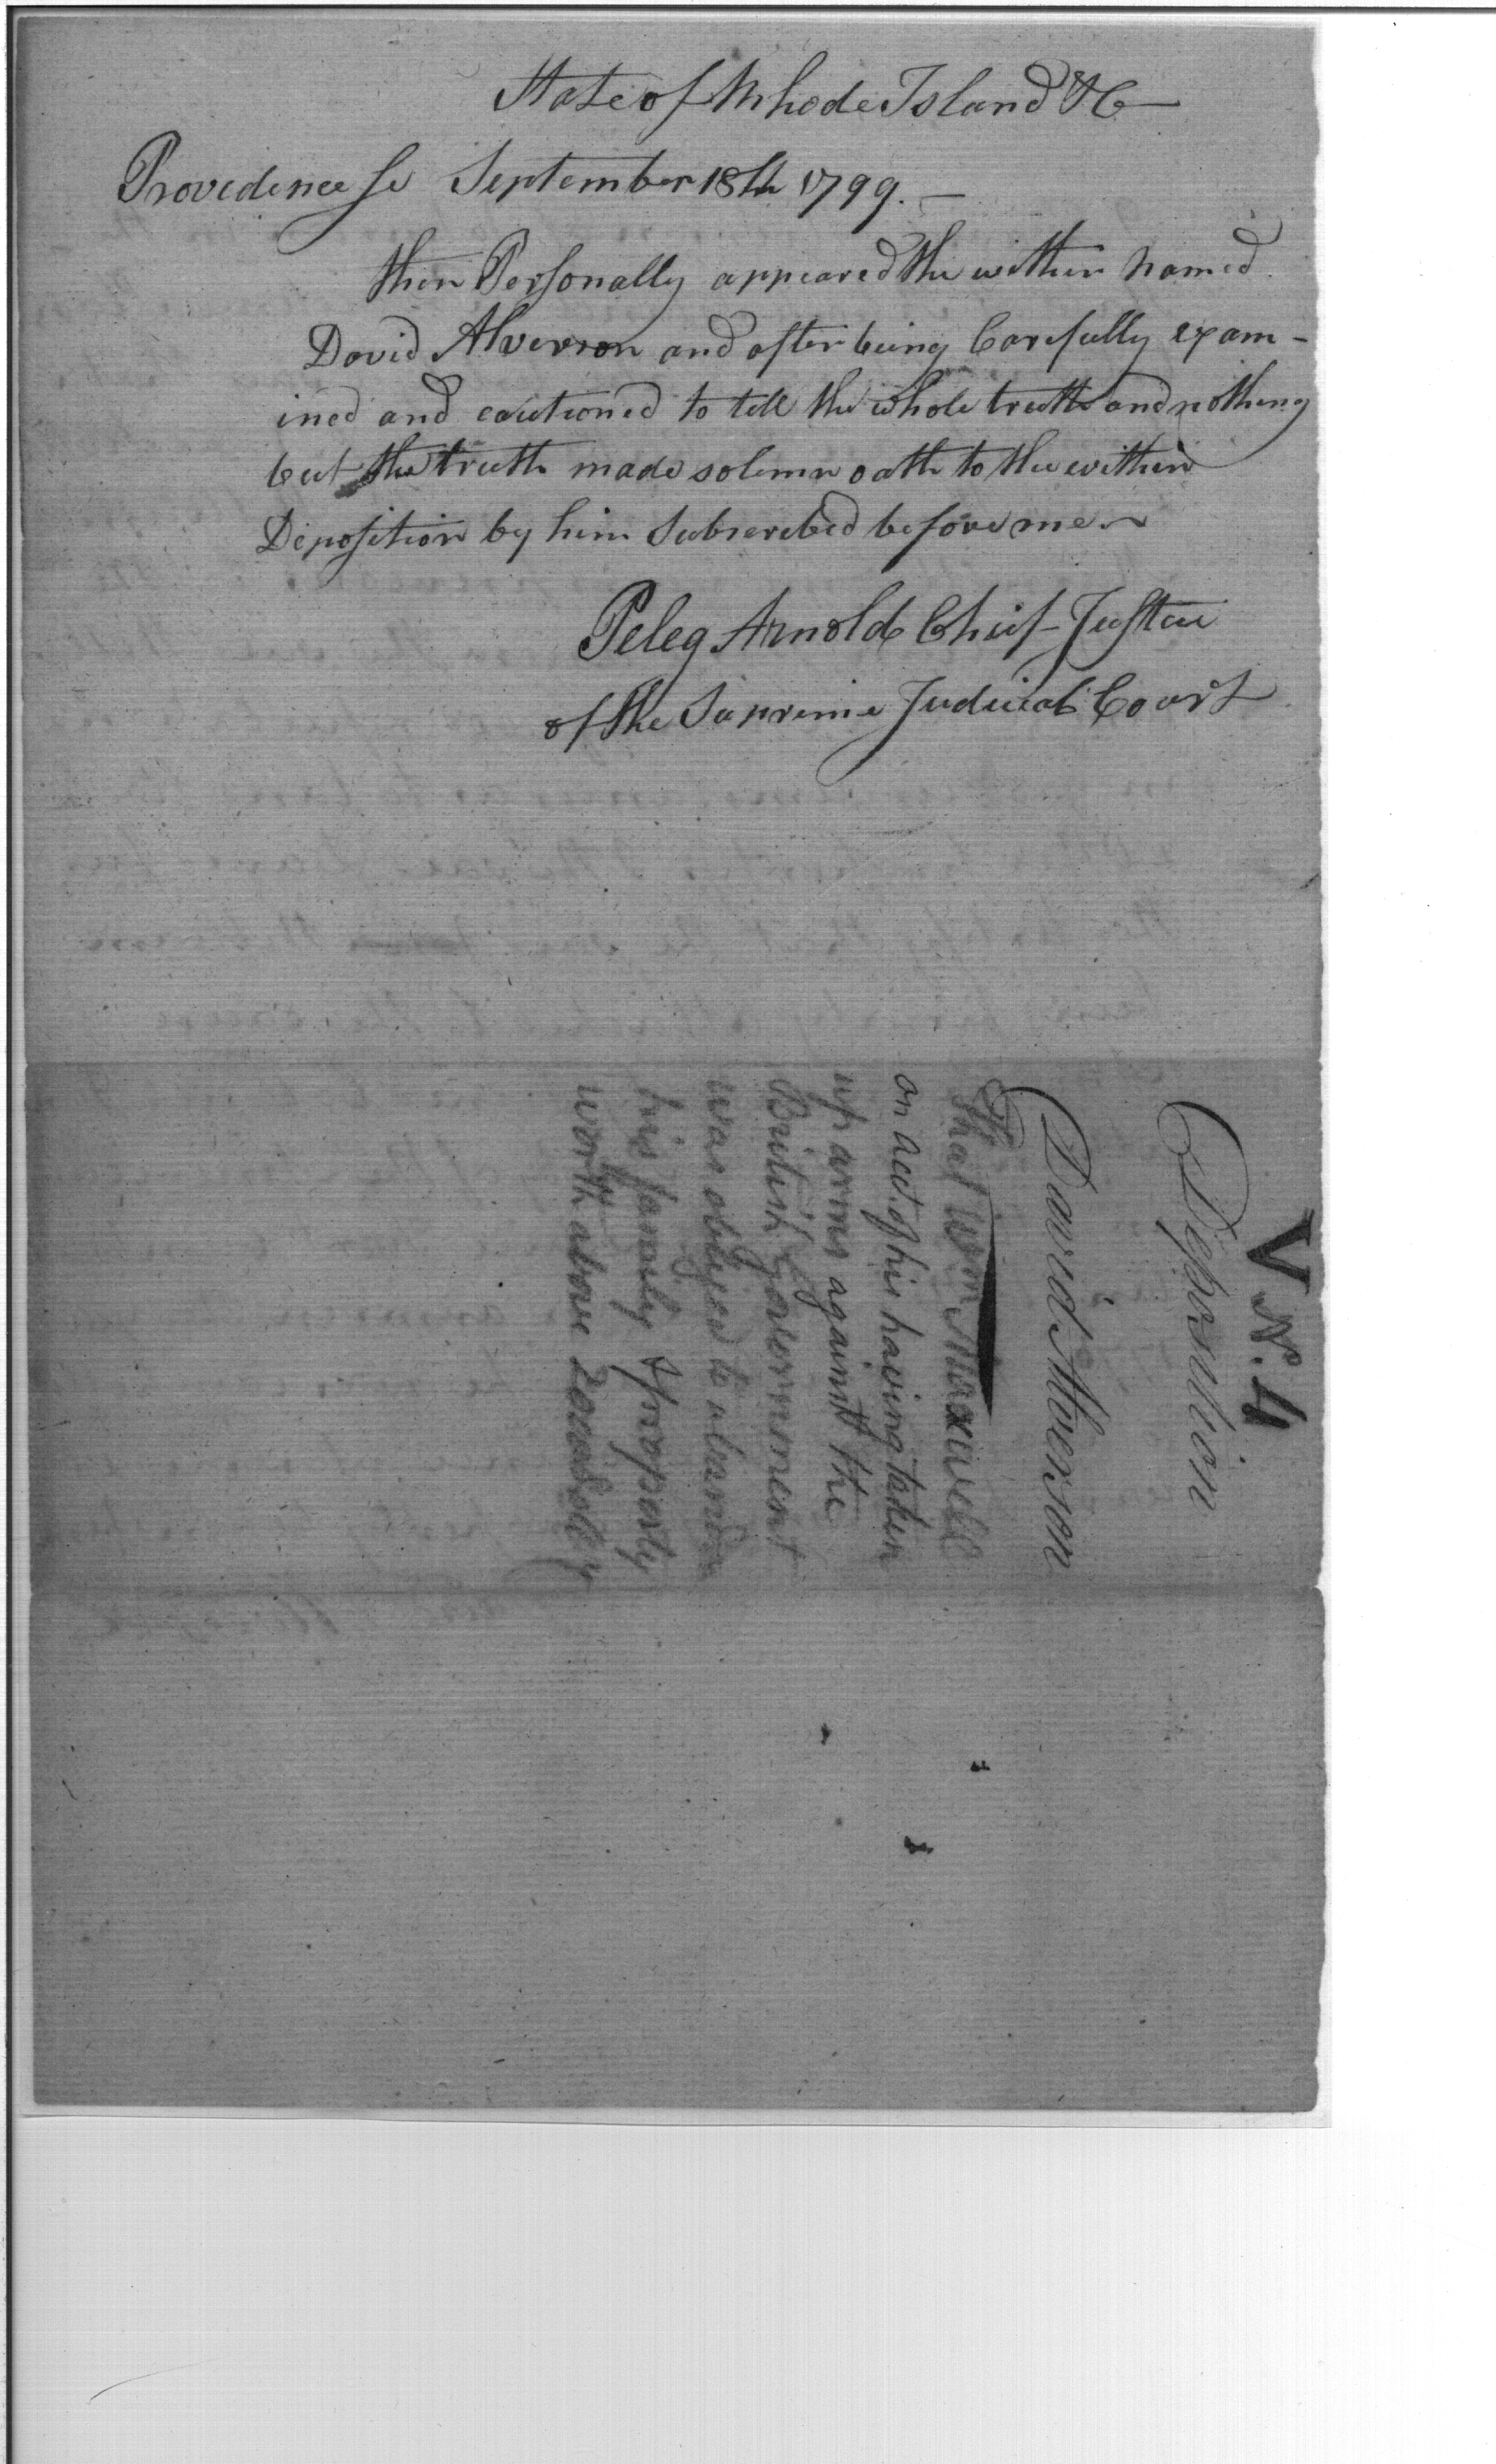 State of Rhode Island &C
Providence Sc September 18th 1799.
then Personally appeared the within named
David Alverson and after being Carefully exam-
ined and cautioned to tell the whole truth and nothing
but the truth made solemn oath to the within
Deposition by him Subscribed before me
Peleg Arnold Chief Justice
of the Supreme Judicial Court
V No. 4
Deposition
David Alverson
That Wm Maxwell
on acct. of his having taken
up arms against the
British government
was obliged to abandon
his family & property
worth above 2000 Dollrs